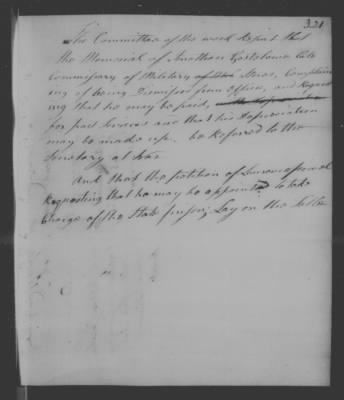 321
The Committee of the week report that
the Memorial of Jonathan Gostelowe late
Commissary of Military Stores, Complain
ing of being Dismissed from office, and Request
ing that he may be paid,
for past Services and that his Depreciation
may be made up. be Referred to the
Secretary at War
And that the petition of
Requesting that he may be appointed to take
Charge of the State prison, Lay on the Table